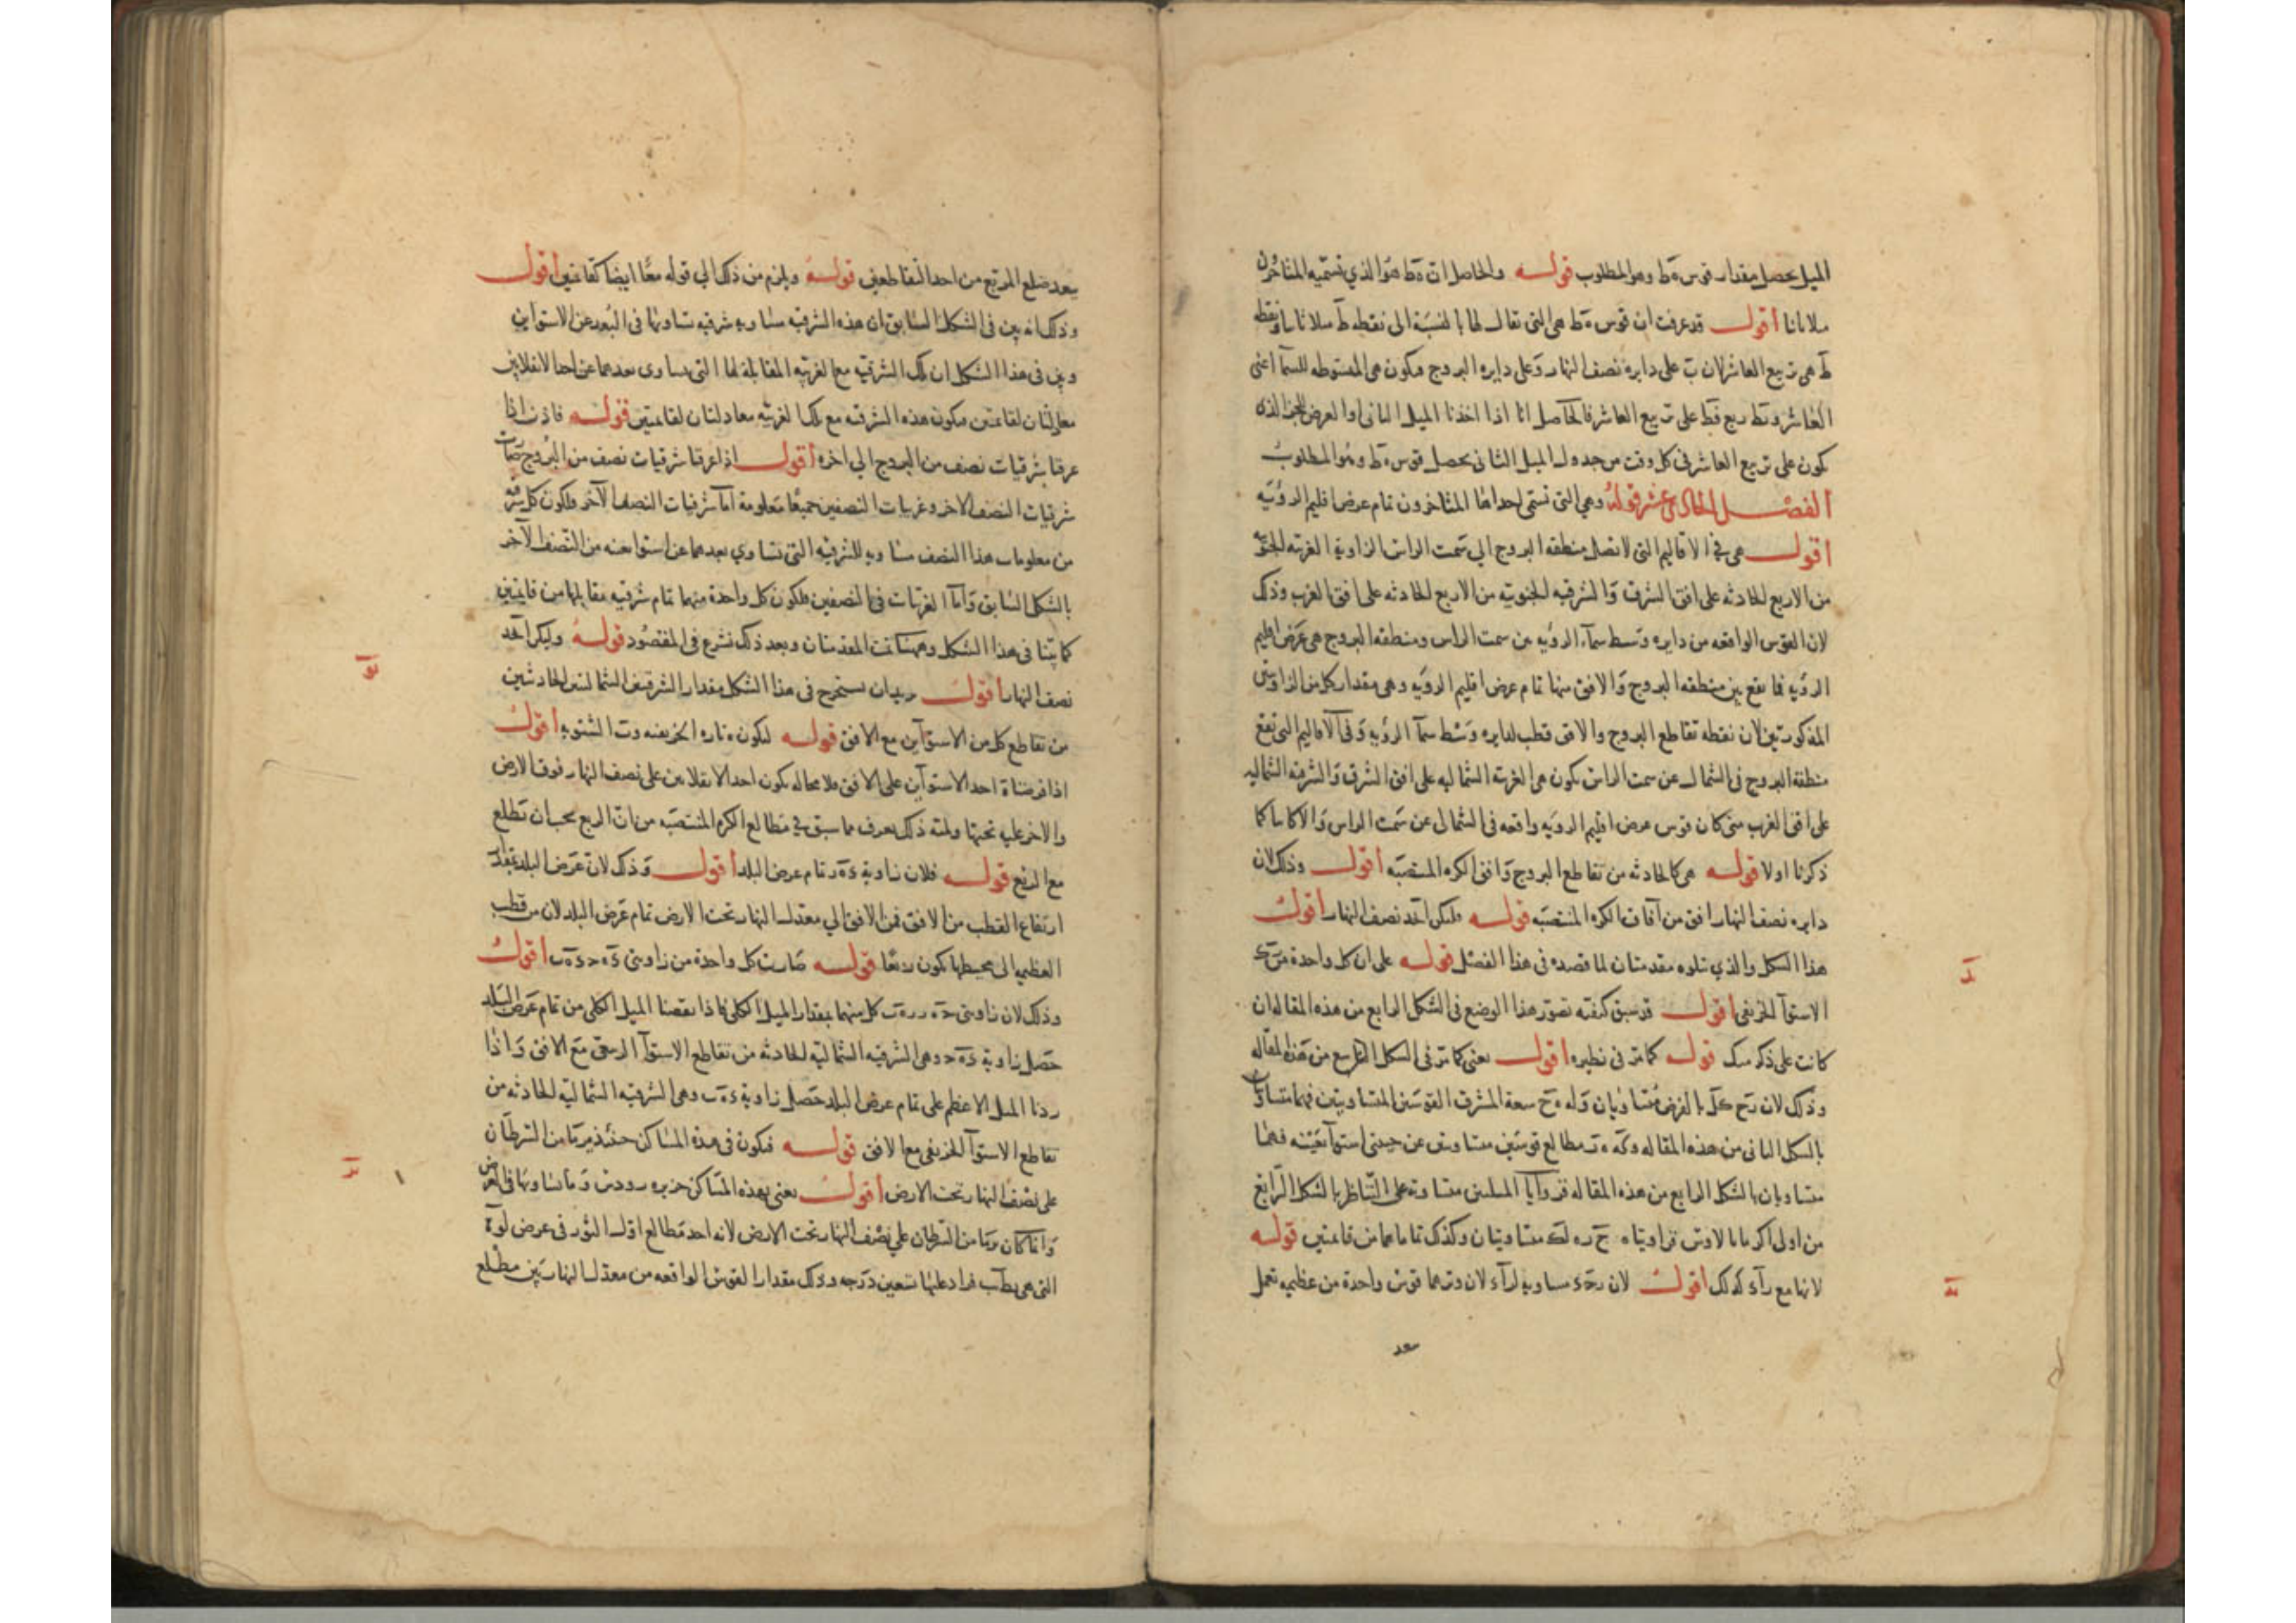 الميل يحصل مقدار قوس ه‍ط وهو المطلوب قوله والحاصل ان ه‍ط هو الذي تسميه المتاخرون
أقول قد عرفت ان قوس ه‍ط هى التى تقال لها بالنسبة الى نقطه ط
ط هى تربيع العاشر لان ب على دايره نصف النهار وعلى دايره البروج فيكون هى المتوسطه للسما اعنى
العاشر وبط ربع فط على تربيع العاشر فالحاصل انا اذا اخذنا الميل الثانى او العرض للجز الذى
يكون على تربيع العاشر فى كل وقت من جدول الميل الثانى يحصل قوس ه‍ط وهو المطلوب
الفصل الحادى عشر قوله وهى التى تسمى احداها المتاخرون تمام عرض اقليم الرؤيه
أقول هى فى الاقاليم التى لا تصل منطقه البروج الى سمت الراس الزاوية الغربيه الجنوبيه
من الاربع الحادثه على افق الشرق والشرقيه الجنوبيه من الاربع الحادثه على افق الغرب وذلك
لان القوس الواقعه من دايره وسط سماء الرؤيه بين سمت الراس ومنطقه البروج هى عرض اقليم
الرؤيه فما يقع بين منطقه البروج والافق منها تمام عرض اقليم الرؤيه وهى مقدار كل من الزاويتين
المذكورتين لان نقطه تقاطع البروج والافق قطب لدايره وسط سما الرؤيه وفى الاقاليم التى تقع
منطقة البروج فى الشمال عن سمت الراس يكون هى الغربيه الشماليه على افق الشرق والشرقيه الشماليه
على افق الغرب متى كان قوس عرض اقليم الرؤيه واقعه فى الشمال عن سمت الراس والا كانتا كما
ذكرنا اولا قوله هى كالحادثه من تقاطع البروج وافق الكره المنتصبه أقول وذلك لان
دايره نصف النهار افق من آفاق الكره المنتصبه قوله فليكن ا‍ح‍د نصف النهار أقول
هذا الشكل والذي يتلوه مقدمتان لما قصده فى هذا الفصل قوله على ان كل واحدة من
الاستوآ الخريفى أقول قد سبق كيفيه تصور هذا الوضع فى الشكل الرابع من هذه المقاله
قوله كما مر فى نظيره أقول يعنى كما مر فى الشكل من هذه المقاله
وذلك لان بالفرض متساويان و سعة المشرق القوسين المتساويتين فهما متساويتان
بالشكل الثانى من هذه المقاله و مطالع قوسين متساويتين عن جنبتى استوآ بعينه فهما
متساويان بالشكل الرابع من هذه المقاله فزوايا المثلثين متساويه على التناظر بالشكل الرابع
من اولى اكر مانالاوس فزاويتا متساويتان وكذلك تماماهما من قايمتين قوله
لانها مع كذلك أقول لان مساوية لان وترهما قوس واحدة من عظيمه تعمل
بعد
بعد ضلع المربع من احد التقاطعين قوله ويلزم من ذلك الى قوله معًا ايضا كقايمتين أقول
وذلك انه بين فى الشكل السابق ان هذه الشرقيه مساويه شرقيه تساويها فى البعد عن الاستواين
وبين فى هذا الشكل ان تلك الشرقيه مع الغربيه المقابلة لها التى يساوى بعدهما عن احد الانقلابين
معادلتان لقايمتين فيكون هذه الشرقيه مع تلك الغربيه معادلتان لقايمتين قوله فاذن اذا
عرفنا شرقيات نصف من البروج الى اخره أقول اذا عرفنا شرقيات نصف من البروج صارت
شرقيات النصف الاخر وغربيات النصفين جميعًا معلومة اما شرقيات النصف الآخر فلكون كل شرقيه
من معلومات هذا النصف مساويه للشرقيه التى تساوي بعدهما عن استوا بعينه من النصف الآخر
بالشكل السابق واما الغربيات فى النصفين فلكون كل واحدة منهما تمام شرقيه مقابلها من قايمتين
كما بينا فى هذا الشكل وههنا تمت المقدمتان وبعد ذلك نشرع فى المقصود قوله وليكن ا‍ح‍د
نصف النهار أقول نريد ان نستخرج فى هذا الشكل مقدار الشرقيتين الشماليتين الحادثتين
من تقاطع كل من الاستوآين مع الافق قوله لتكون ه‍ تاره الخريفيه وتارة الشتويه أقول
اذا فرضنا ه‍ احد الاستوآين على الافق فلا محاله يكون احد الانقلابين على نصف النهار فوق الارض
والاخر عليه تحتها ولميه ذلك يعرف مما سبق فى مطالع الكره المنتصبه من ان الربع يجب ان تطلع
مع الربع قوله فلان زاوية تمام عرض البلد أقول وذلك لان عرض البلد بمقدار
ارتفاع القطب من الافق فمن الافق الى معدل النهار تحت الارض تمام عرض البلد لان من قطب
العظيمه الى محيطها يكون ربعًا قوله صارت كل واحدة من زاويتى أقول
وذلك لان زاويتى كل منهما بمقدار الميل الكلى فاذا نقصنا الميل الكلى من تمام عرض البلد
حصل زاوية وهى الشرقيه الشماليه الحادثه من تقاطع الاستوآ الربيعى مع الافق واذا
زدنا الميل الاعظم على تمام عرض البلد حصل زاوية وهى الشرقيه الشماليه الحادثه من
تقاطع الاستوآ الخريفى مع الافق قوله فيكون فى هذه المساكن حينئذ من السرطان
على نصف النهار تحت الارض أقول يعنى بهذه المساكن جزيره رودس وما يساويها فى العرض
وانما كان من السرطان على نصف النهار تحت الارض لانه احد مطالع اول الثور فى عرض
التى هى فزاد عليها تسعين درجه وذلك مقدار القوس الواقعه من معدل النهار بين مطلع